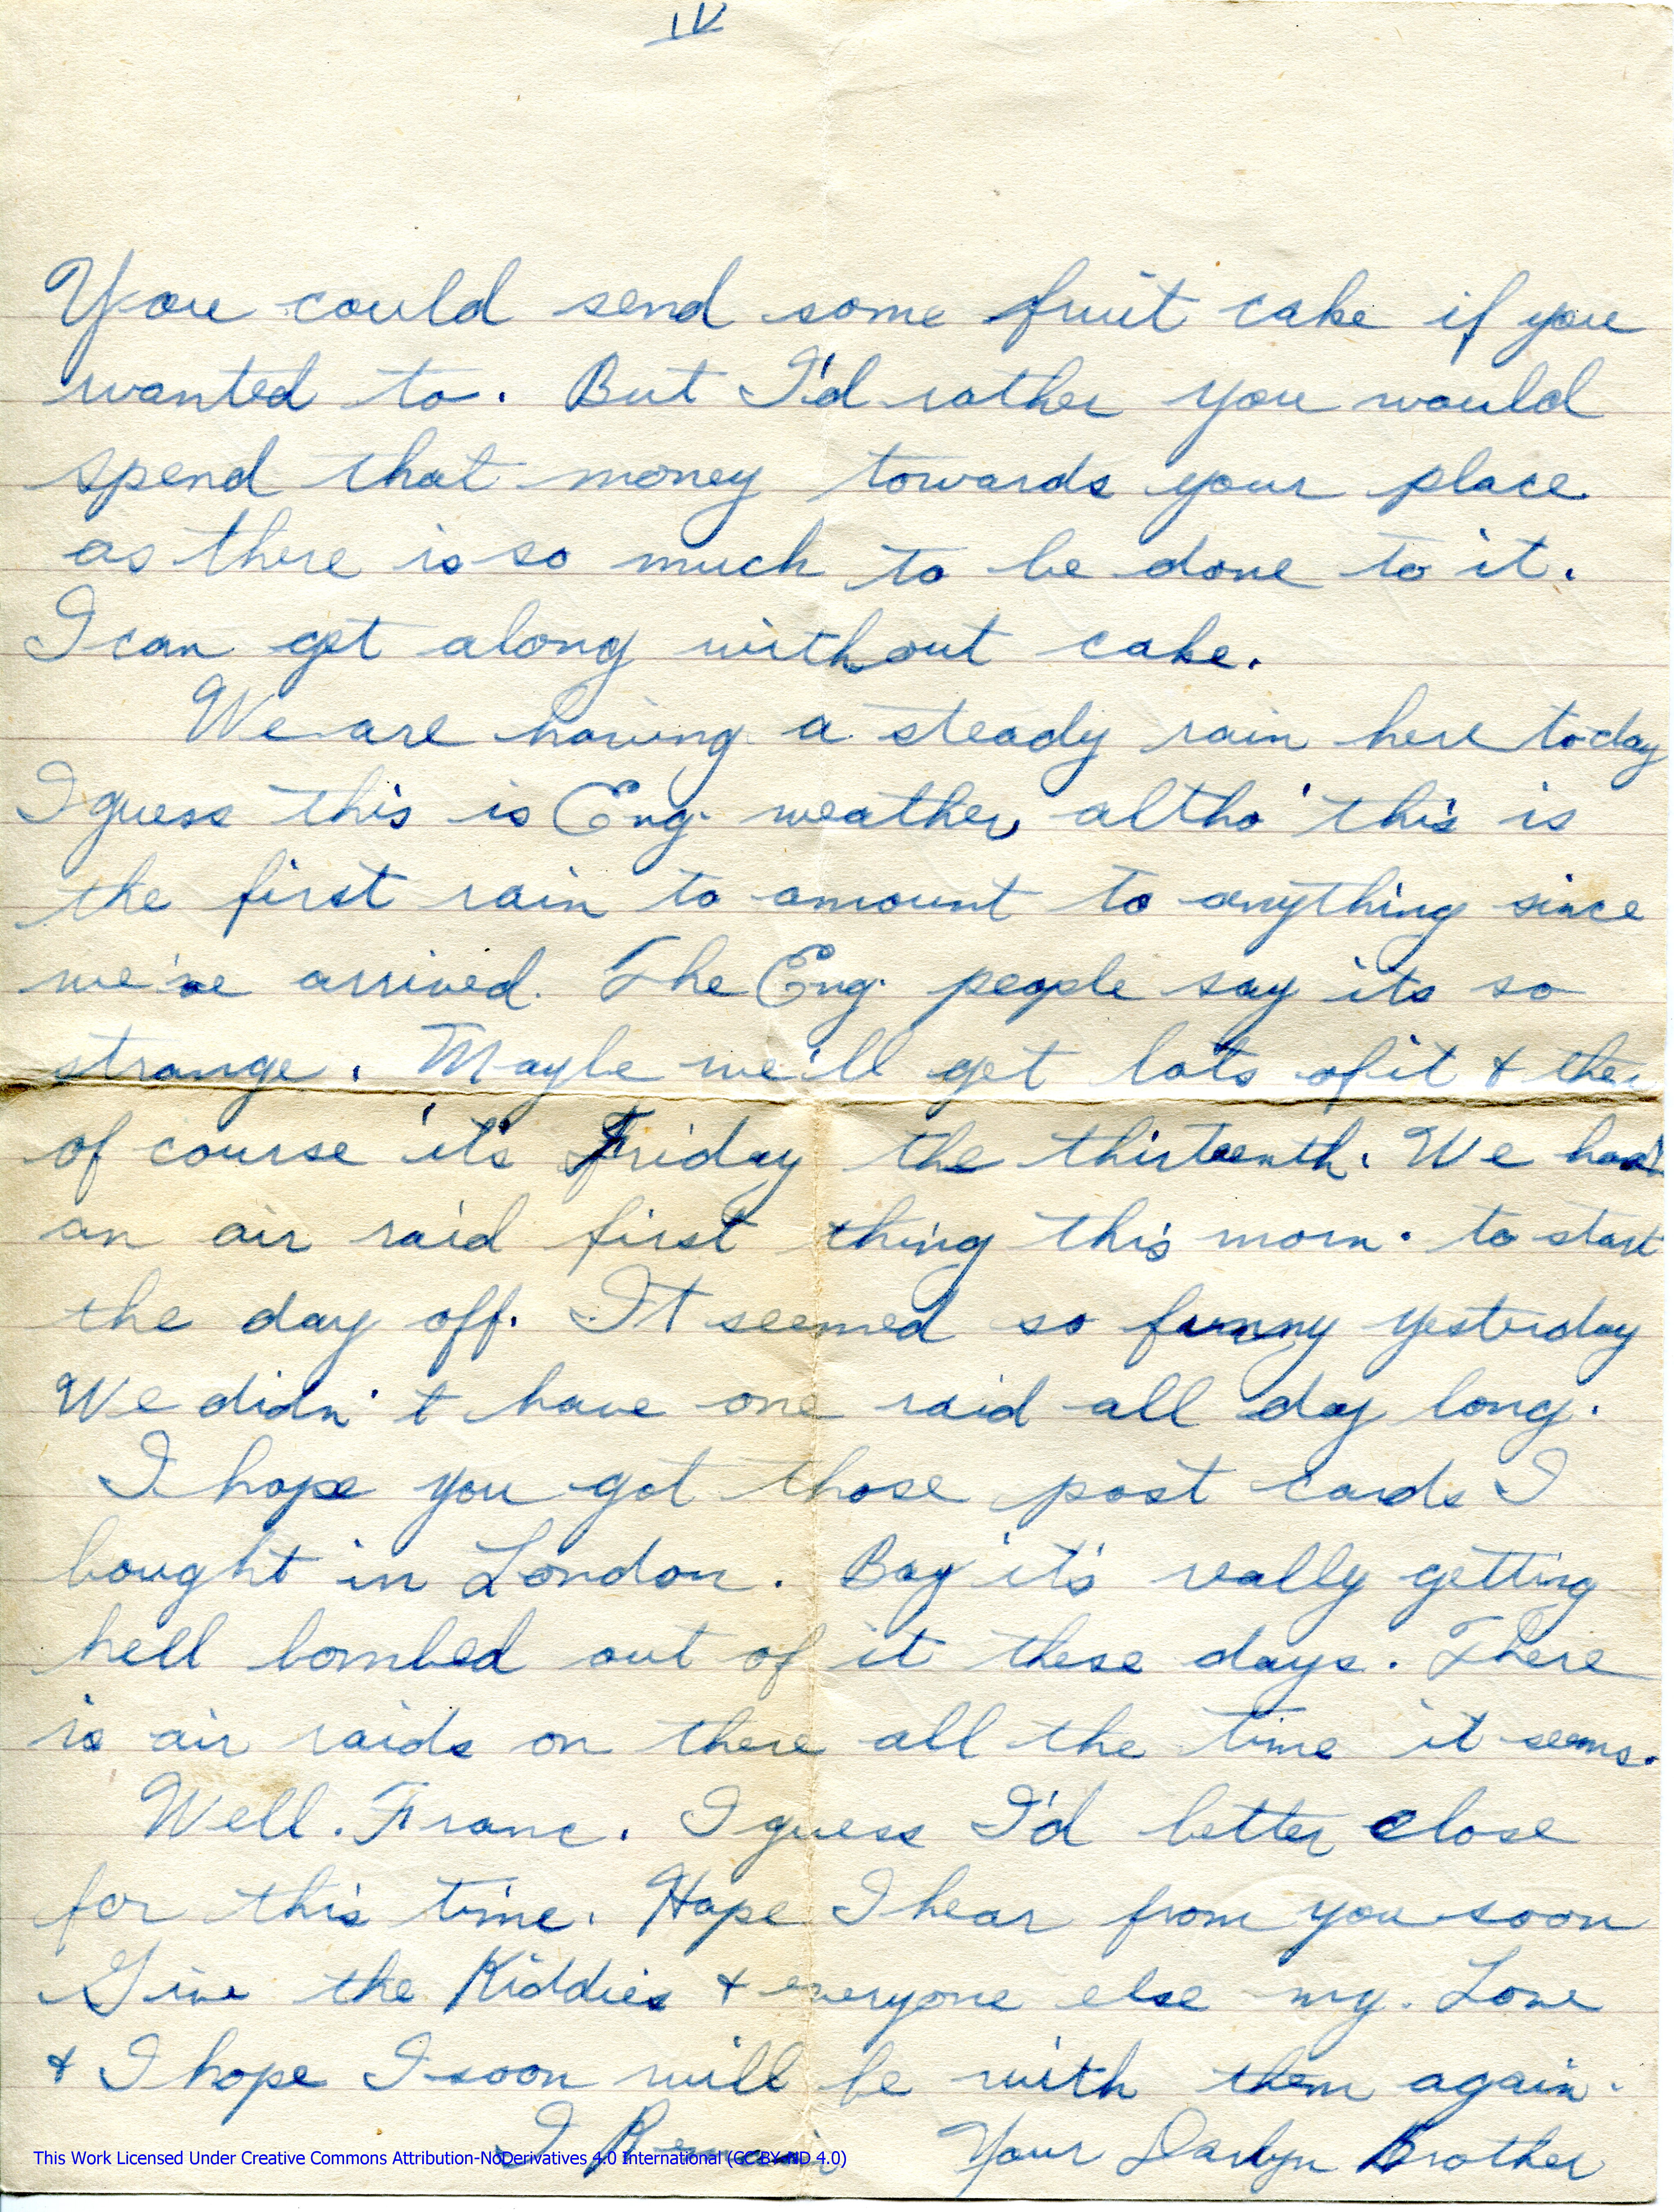 IV
You could send some fruit cake if you
wanted to. But I'd rather you would
spend that money towards your place
as there is so much to be done to it.
I can get along without cake.
We are having a steady rain here to-day
I guess this is Eng. weather, altho' this is
the first rain to amount to anything since
we've arrived. The Eng. people say its so
strange. Maybe we'll get lots of it & then
of course it's Friday the thirteenth. We had
an air raid first thing this morn. to start
the day off. It seemed so funny yesterday
We didn't have one raid all day long.
I hope you got those post cards I
bought in London. Boy it's really getting
hell bombed out of it these days. There
is air raids on there all the time it seems.
Well. Franc. I guess I'd better close
for this time. Hope I hear from you soon
Give the Kiddies & everyone else my. Love
& I hope I soon will be with them again.
I Remain Your Darlyn Brother
This Work Licensed Under Creative Commons Attribution-NoDerivatives 4.0 International (CC BY-ND 4.0)